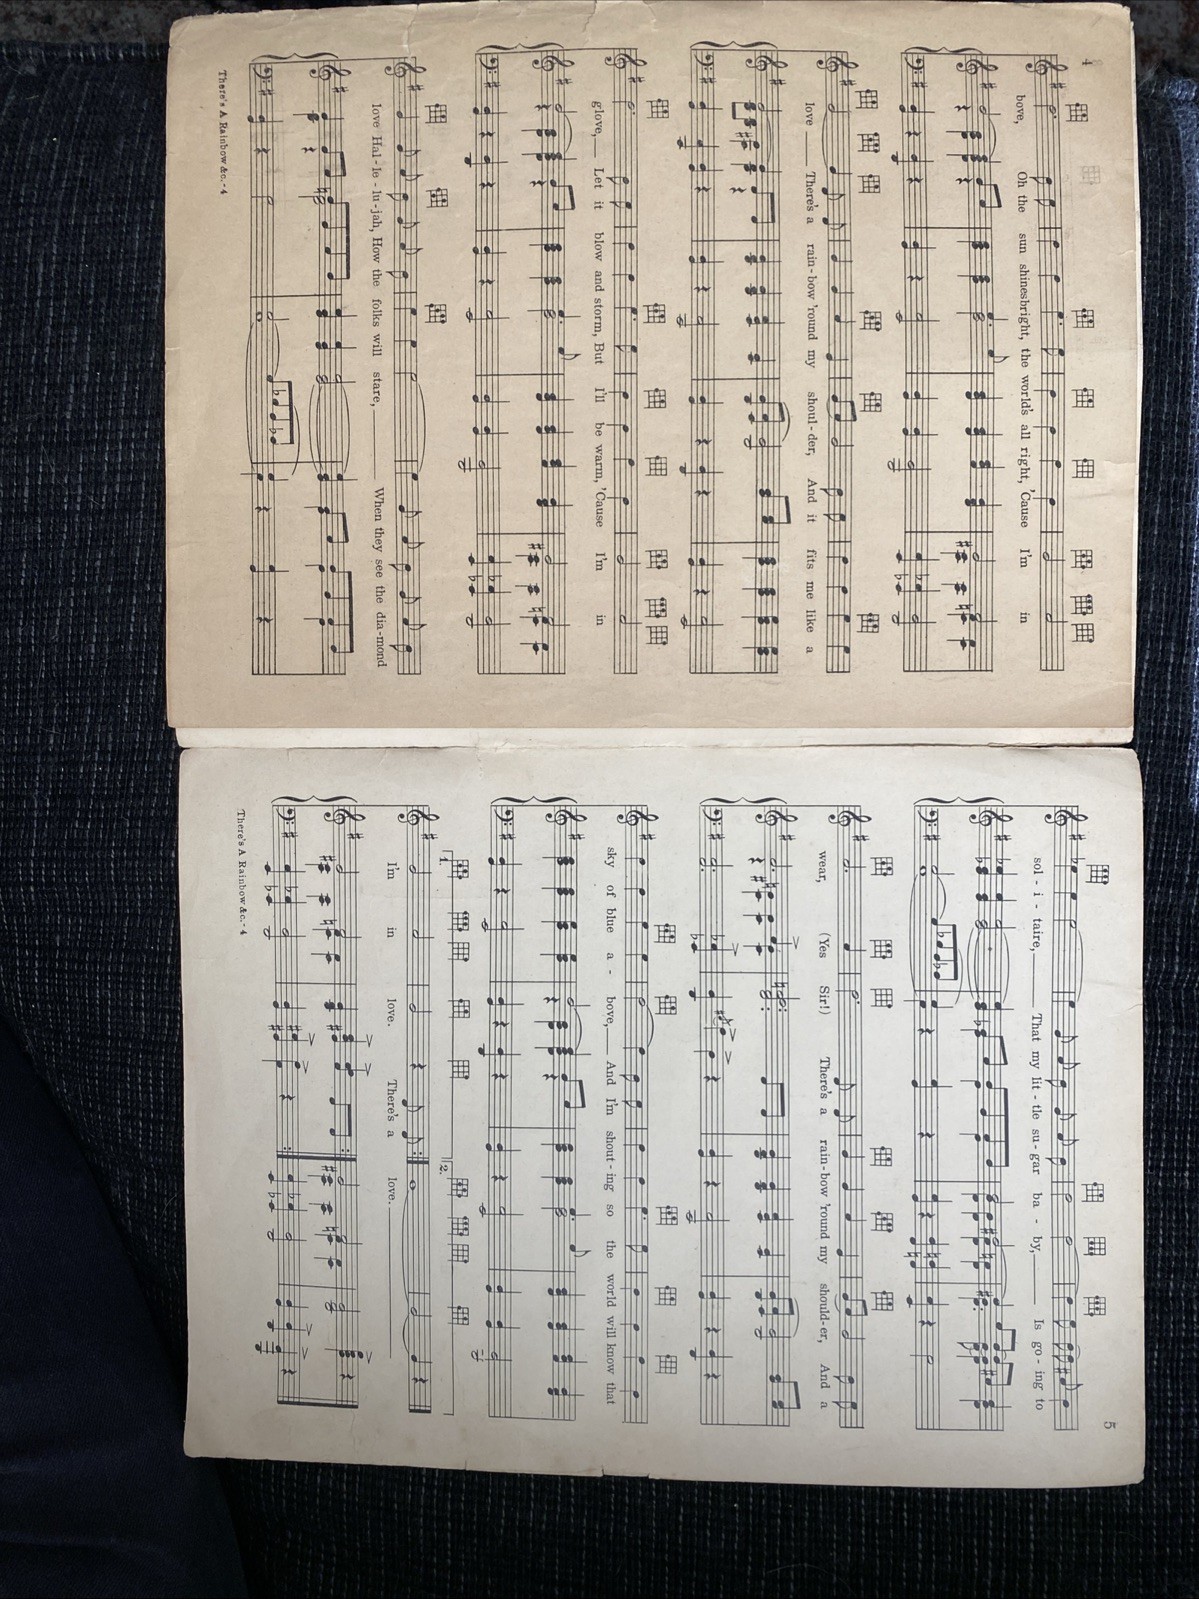 4
bove, Oh the sun shines bright, the world's all right, 'Cause I'm in
love There's a rain-bow 'round my shoul-der, And it fits me like a
glove, Let it blow and storm, But I'll be warm, 'Cause I'm in
love Hal-le-lu-jah, How the folks will stare, When they see the dia-mond
There's A Rainbow &c.-4
5
sol-i-taire, That my lit-tle su-gar ba-by, Is go-ing to
wear, (Yes Sir!) There's a rain-bow 'round my should-er, And a
sky of blue a-bove, And I'm shout-ing so the world will know that
1. 2.
I'm in love. There's a love.
There's A Rainbow &c.-4